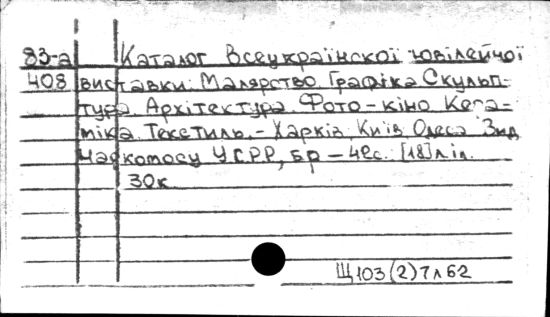 83-а Каталог Всеукраїнскої ювілейної
408 виставки. Малярство Графіка Скульп-
тура. Архітектура. Фото-кіно Кера-
міка. Текстиль. - Харків, Київ Одеса Вид
Наркомосу УСРР, б.р - 48с. [18] л іл.
30к
Щ103(2)7л62